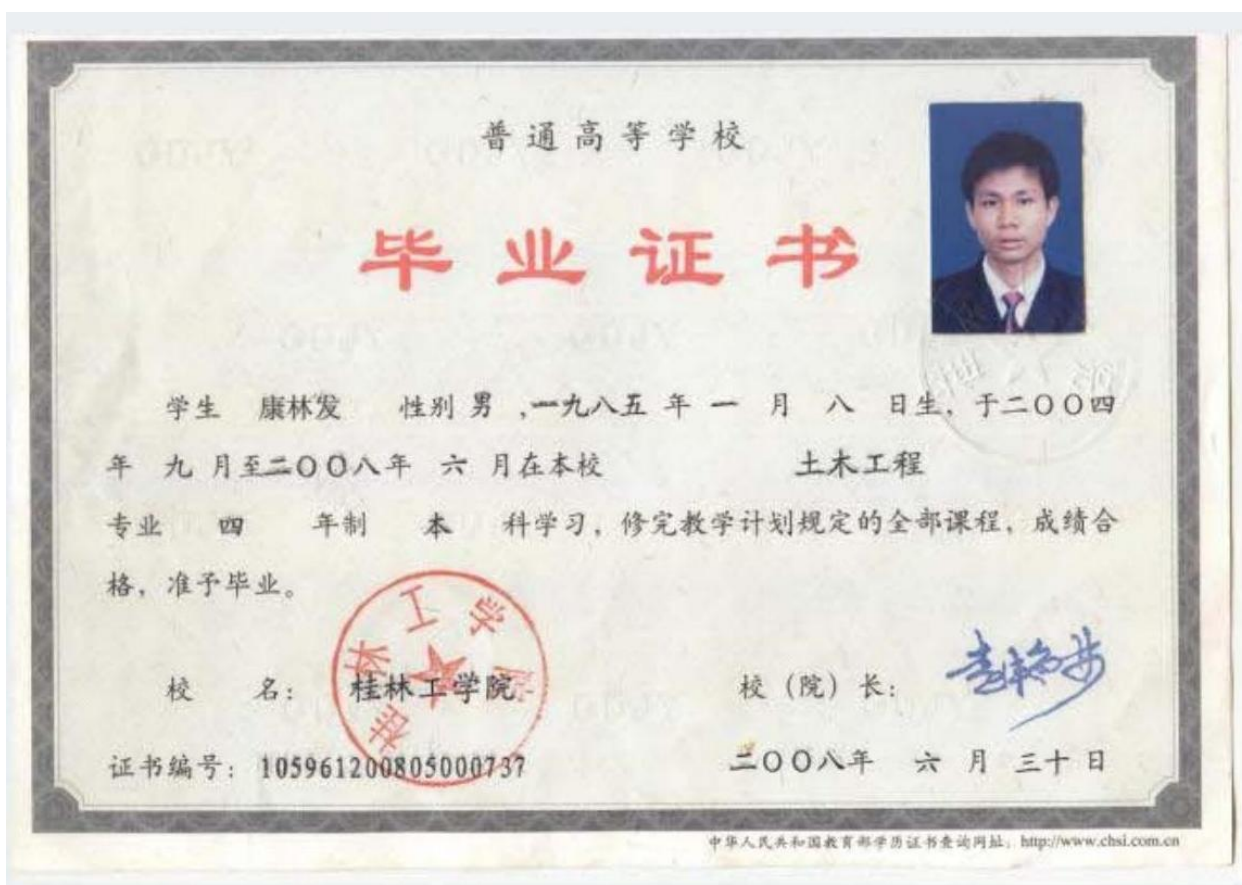 普通高等学校
毕业证书
学生 康林发 性别 男 ,一九八五 年 一 月 八 日生, 于二〇〇四
年 九 月至二〇〇八年 六 月在本校 土木工程
专业 四 年制 本 科学习, 修完教学计划规定的全部课程, 成绩合
格, 准予毕业。
桂林工学院
校 名: 桂林工学院 校 (院) 长:
证书编号: 105961200805000737 二〇〇八年 六 月 三十 日
中华人民共和国教育部学历证书查询网址: http://www.chsi.com.cn